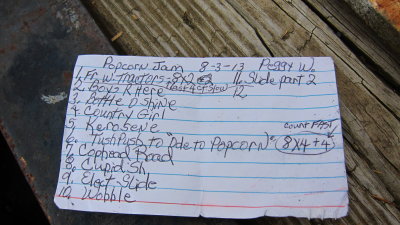 Popcorn Jam 8-3-13 Peggy W.
1. Fr. W. Tractors - 8x2
2. Boys R Here Last 4 ct slow
3. Bottle O Shine
4. Country Girl
5. Kerosene
6. Tush Push to "Ode to Popcorn" (8x4+4)
count FAST
7. Cophead Road
8. Cupid Sh
9. Elect Slide
10. Wobble
11. Slide part 2
12